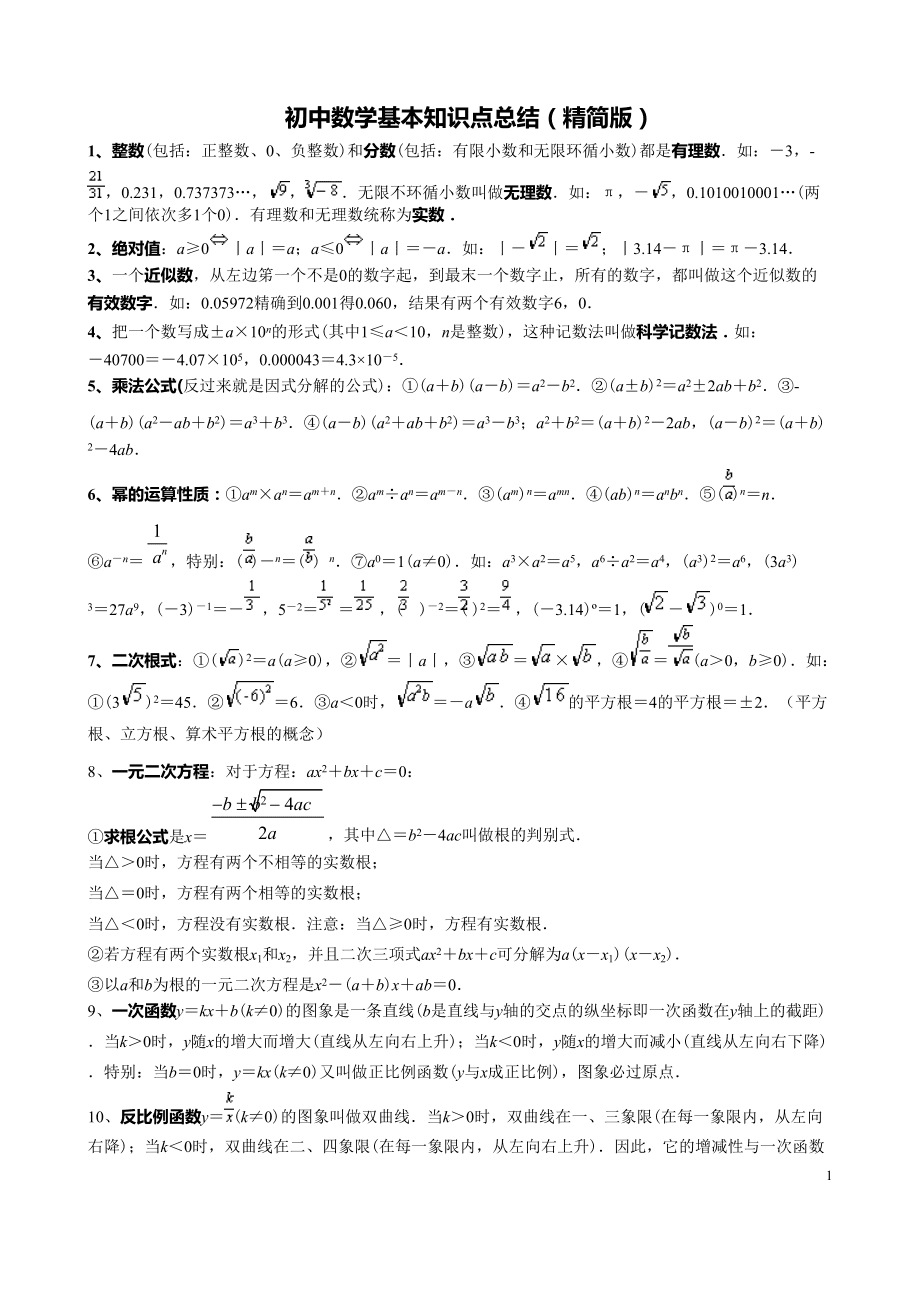 初中数学基本知识点总结（精简版）
1、整数(包括：正整数、0、负整数)和分数(包括：有限小数和无限环循小数)都是有理数．如：－3，-
21/31，0.231，0.737373…，√9，∛－8．无限不环循小数叫做无理数．如：π，－√5，0.1010010001…(两
个1之间依次多1个0)．有理数和无理数统称为实数．
2、绝对值：a≥0⇔丨a丨＝a；a≤0⇔丨a丨＝－a．如：丨－√2丨＝√2；丨3.14－π丨＝π－3.14．
3、一个近似数，从左边笫一个不是0的数字起，到最末一个数字止，所有的数字，都叫做这个近似数的
有效数字．如：0.05972精确到0.001得0.060，结果有两个有效数字6，0．
4、把一个数写成±a×10ⁿ的形式(其中1≤a＜10，n是整数)，这种记数法叫做科学记数法．如：
－40700＝－4.07×10⁵，0.000043＝4.3×10⁻⁵．
5、乘法公式(反过来就是因式分解的公式)：①(a＋b)(a－b)＝a²－b²．②(a±b)²＝a²±2ab＋b²．③-
(a＋b)(a²－ab＋b²)＝a³＋b³．④(a－b)(a²＋ab＋b²)＝a³－b³；a²＋b²＝(a＋b)²－2ab，(a－b)²＝(a＋b)
²－4ab．
6、幂的运算性质：①aᵐ×aⁿ＝aᵐ⁺ⁿ．②aᵐ÷aⁿ＝aᵐ⁻ⁿ．③(aᵐ)ⁿ＝aᵐⁿ．④(ab)ⁿ＝aⁿbⁿ．⑤(b/a)ⁿ＝n．
⑥a⁻ⁿ＝1/aⁿ，特别：(b/a)－n＝(a/b) n．⑦a⁰＝1(a≠0)．如：a³×a²＝a⁵，a⁶÷a²＝a⁴，(a³)²＝a⁶，(3a³)
³＝27a⁹，(－3)⁻¹＝－1/3，5⁻²＝1/5²＝1/25，(2/3)⁻²＝(3/2)²＝9/4，(－3.14)º＝1，(√2－√3)⁰＝1．
7、二次根式：①(√a)²＝a(a≥0)，②√a²＝丨a丨，③√ab＝√a×√b，④√(b/a)＝√b/√a(a＞0，b≥0)．如：
①(3√5)²＝45．②√(-6)²＝6．③a＜0时，√a²b＝－a√b．④√16的平方根＝4的平方根＝±2．（平方
根、立方根、算术平方根的概念）
8、一元二次方程：对于方程：ax²＋bx＋c＝0：
①求根公式是x＝(−b±√b²−4ac)/2a，其中△＝b²－4ac叫做根的判别式．
当△＞0时，方程有两个不相等的实数根；
当△＝0时，方程有两个相等的实数根；
当△＜0时，方程没有实数根．注意：当△≥0时，方程有实数根．
②若方程有两个实数根x₁和x₂，并且二次三项式ax²＋bx＋c可分解为a(x－x₁)(x－x₂)．
③以a和b为根的一元二次方程是x²－(a＋b)x＋ab＝0．
9、一次函数y＝kx＋b(k≠0)的图象是一条直线(b是直线与y轴的交点的纵坐标即一次函数在y轴上的截距)
．当k＞0时，y随x的增大而增大(直线从左向右上升)；当k＜0时，y随x的增大而减小(直线从左向右下降)
．特别：当b＝0时，y＝kx(k≠0)又叫做正比例函数(y与x成正比例)，图象必过原点．
10、反比例函数y＝k/x(k≠0)的图象叫做双曲线．当k＞0时，双曲线在一、三象限(在每一象限内，从左向
右降)；当k＜0时，双曲线在二、四象限(在每一象限内，从左向右上升)．因此，它的增减性与一次函数
1